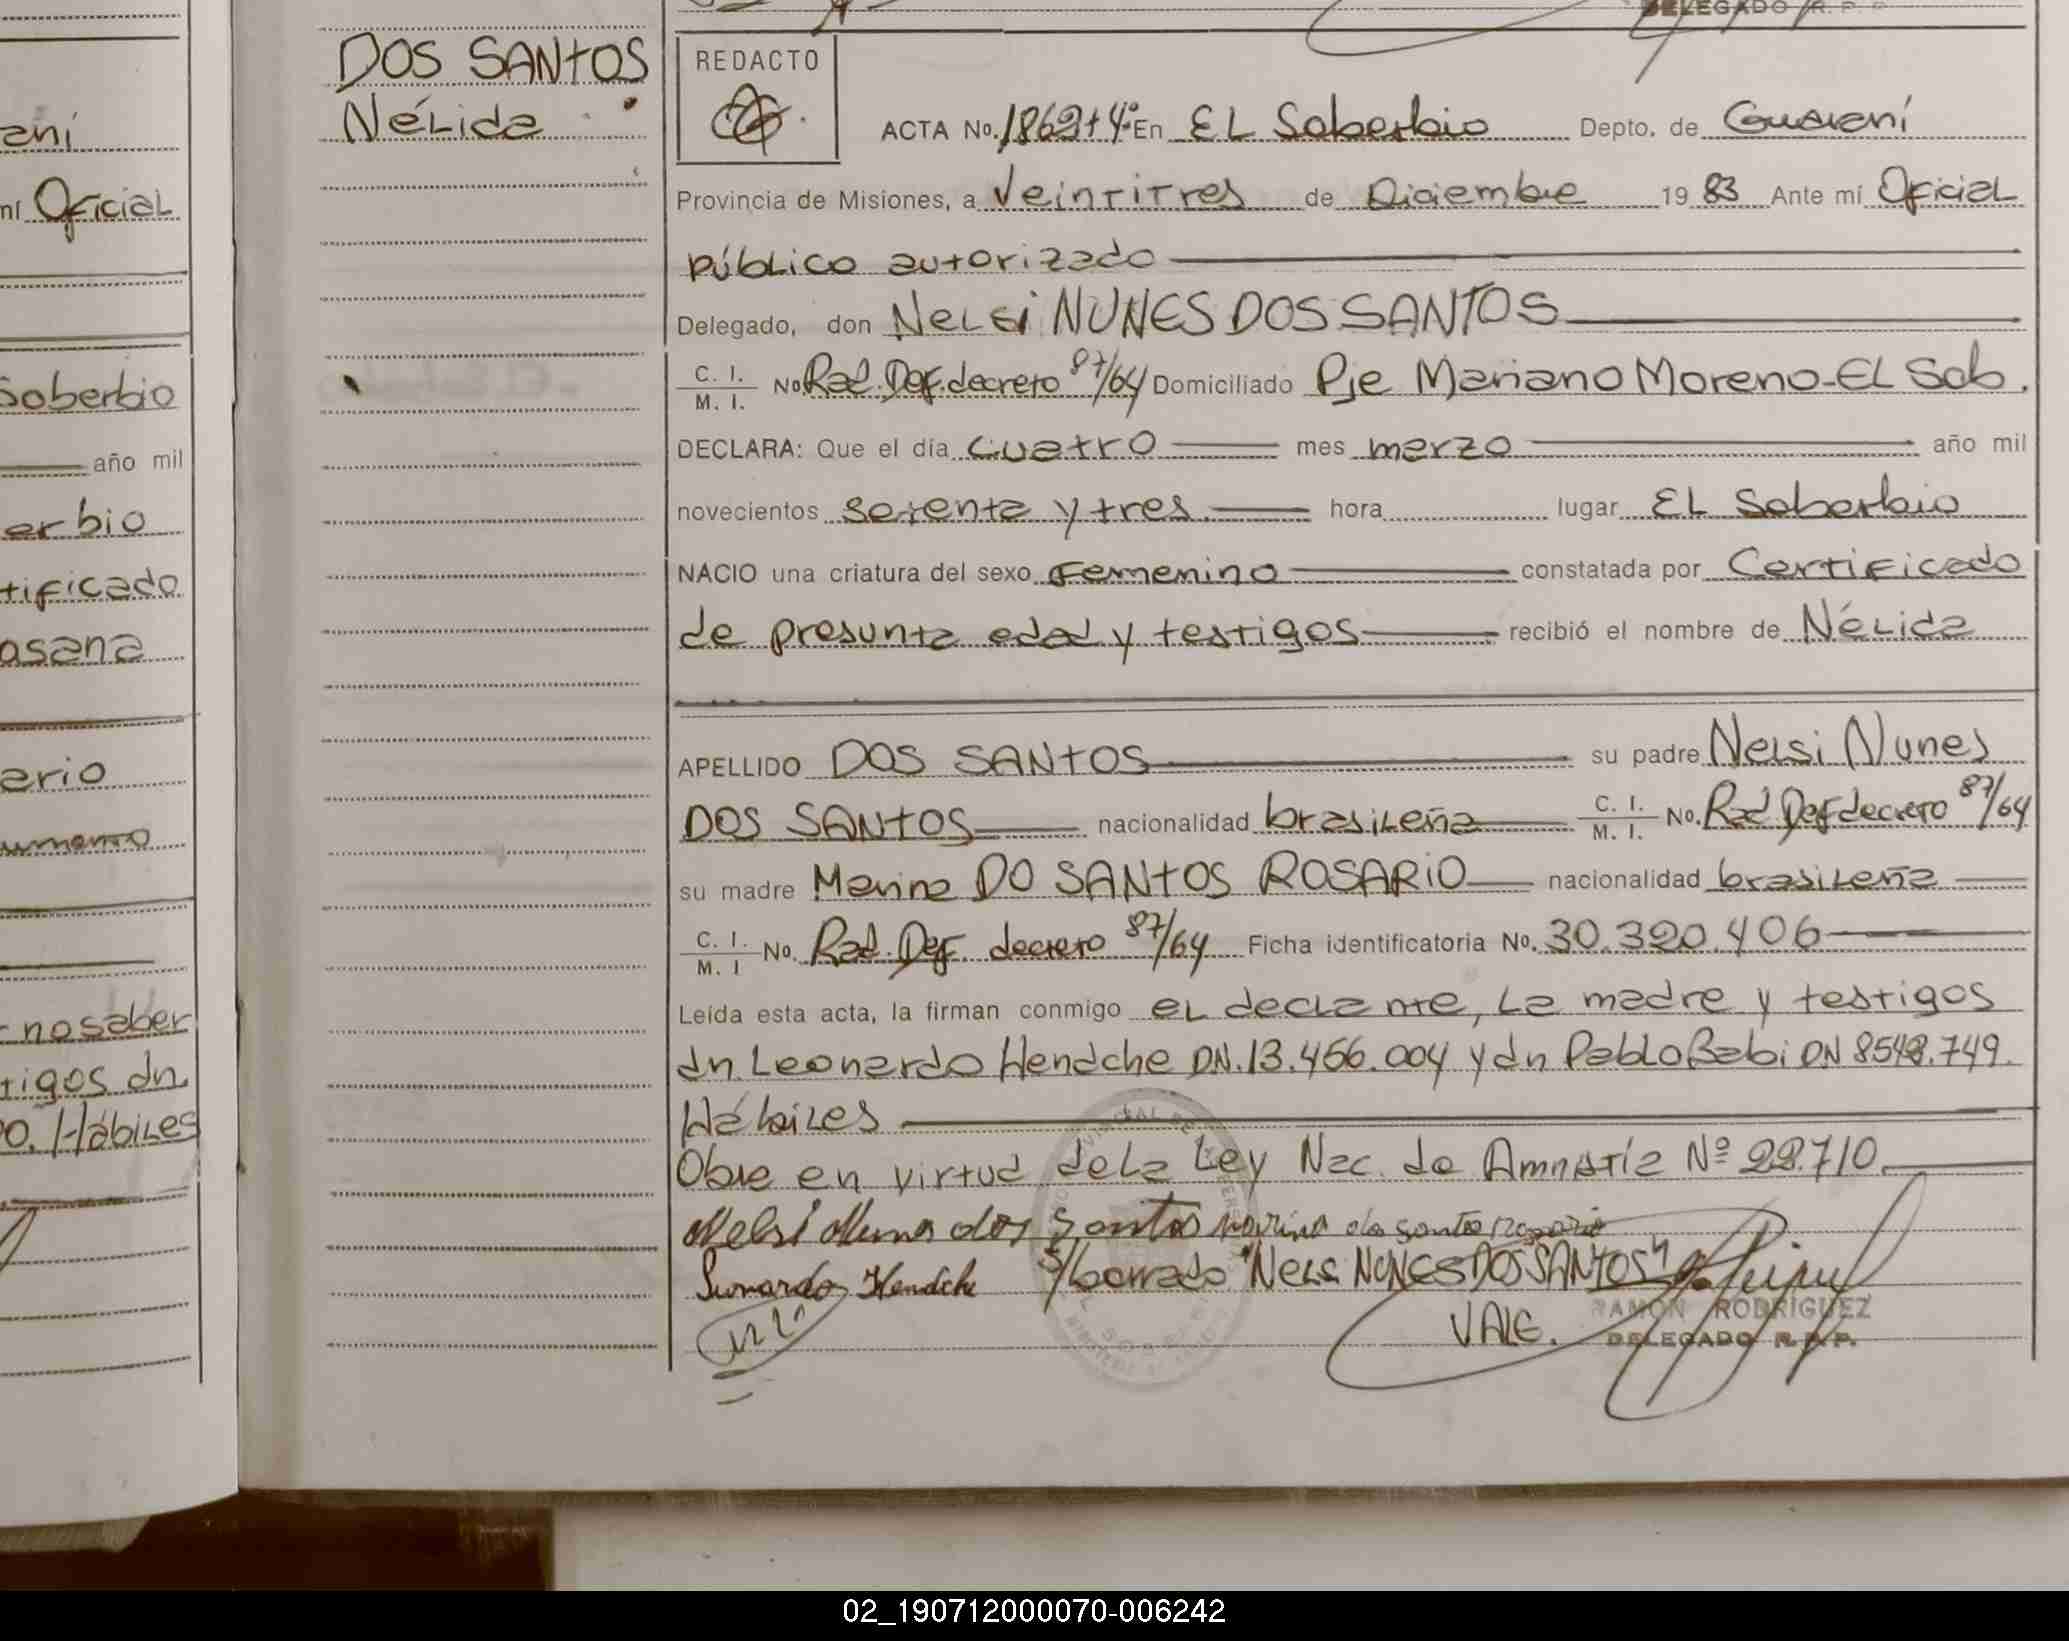 DELEGADO R. P. P.
DOS SANTOS
Nélida
REDACTO
ACTA No. 1862+4º En EL Soberbio Depto. de Guaraní
Provincia de Misiones, a Veintitres de Diciembre 19 83 Ante mí Oficial
público autorizado
Delegado, don Nelsi NUNES DOS SANTOS
C. I. M. I. No Rad. Def. decreto 87/64 Domiciliado Pje Mariano Moreno-EL Sob.
DECLARA: Que el día cuatro mes marzo año mil
novecientos setenta y tres hora lugar EL Soberbio
NACIO una criatura del sexo femenino constatada por Certificado
de presunta edad y testigos recibió el nombre de Nélida
APELLIDO DOS SANTOS su padre Nelsi Nunes
DOS SANTOS nacionalidad brasileña C. I. M. I. No. Rad Def decreto 87/64
su madre Marina DO SANTOS ROSARIO nacionalidad brasileña
C. I. M. I No. Rad. Def. decreto 87/64 Ficha identificatoria No. 30.320.406
Leída esta acta, la firman conmigo el declante, la madre y testigos
dn. Leonardo Hendche DN.13.456.004 y dn Pablo Babi DN 8548.749.
Hábiles
Obre en virtud de la Ley Nac. de Amnistía Nº 22.710
Nelsi Nunes dos Santos marina do santo rosario
Leonardo Hendche S/borrado "Nelsi NUNES DOS SANTOS"
VALE.
RAMON RODRIGUEZ
DELEGADO R.P.P.
aní
ní Oficial
Soberbio
año mil
erbio
tificado
osana
ario
umento
no saber
tigos dn
o. Hábiles
02_190712000070-006242